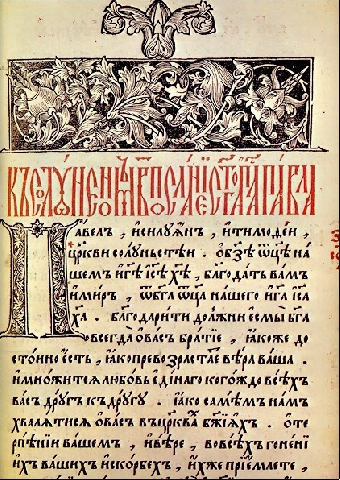 къ солꙋнѧномъ в҃ посланїе ст҃аго ап҃ла павла
Павелъ , и силꙋѧнъ , и тимоѳеи ,
цр҃кви солꙋньстеи . о бз҃ѣ ѿц҃ѣ на
шемъ и г҃ѣ і҃сѣ х҃ѣ , благодать вамъ
и миръ , ѿ б҃га ѿц҃а нашего и г҃а іс҃а
х҃а . благодарити должни есмы б҃га
всегда о васъ братїе , ꙗкоже до
стоино есть , ꙗко превозрастаетъ вѣра ваша .
и множитсѧ любовь единаго когождо всѣхъ
васъ дрꙋгъ къ дрꙋгꙋ . ꙗко самѣмъ намъ
хвалѧтисѧ о васъ въ цр҃квахъ бж҃їихъ . о те
рпѣнїи вашемъ , и вѣре , во всѣхъ гоненїи
ихъ вашихъ и скорбехъ , ихже прїемлете ,